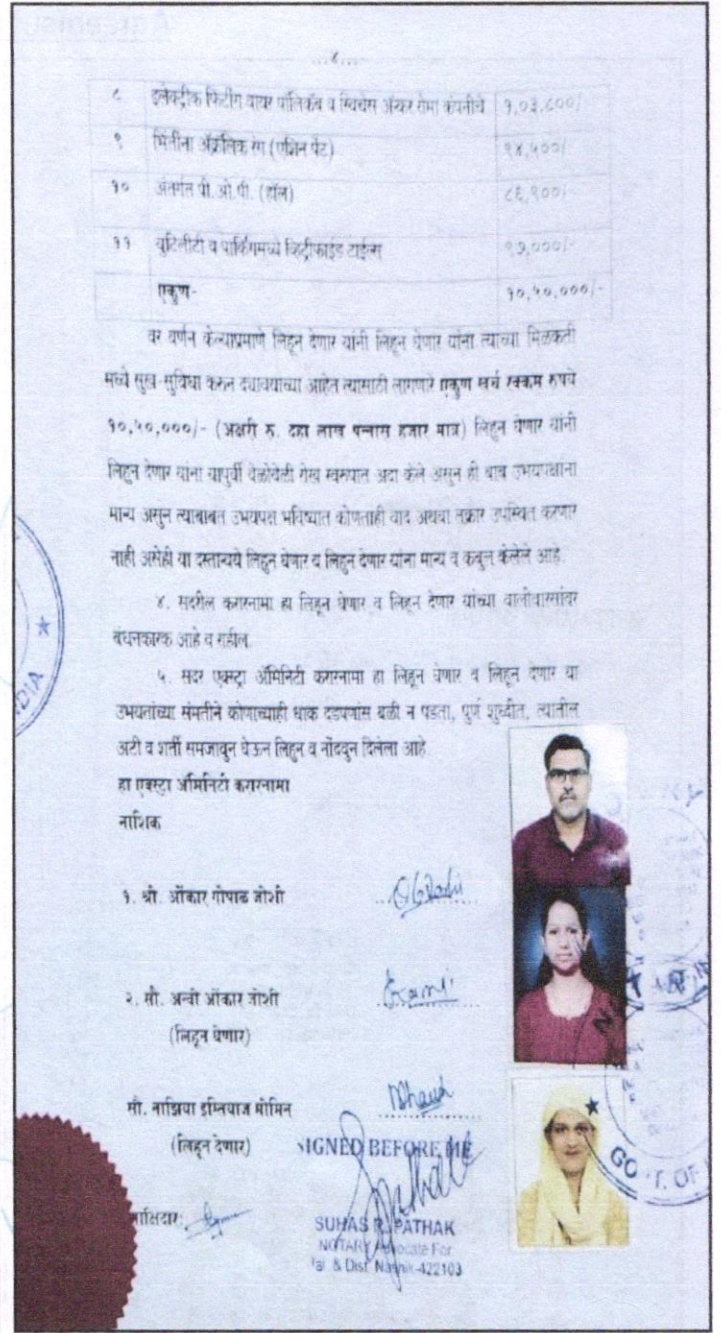 ...४...
८ इलेक्ट्रीक फिटींग वायर पॉलिकॅब व स्विचेस अँकर रोमा कंपनीचे १,०३,८००/-
९ भिंतीना अ‍ॅक्रॅलिक रंग (एशिन पेंट) ९४,५००/-
१० अंतर्गत पी.ओ.पी. (हॉल) ८६,९००/-
११ युटिलीटी व पार्किंगमध्ये व्हिट्रीफाईड टाईल्स ९७,०००/-
एकुण- १०,५०,०००/-
वर वर्णन केल्याप्रमाणे लिहून देणार यांनी लिहून घेणार यांना त्याच्या मिळकती
मध्ये सुख-सुविधा करुन द्यावयाच्या आहेत त्यासाठी लागणारे एकुण खर्च रक्कम रुपये
१०,५०,०००/- (अक्षरी रु. दहा लाख पन्नास हजार मात्र) लिहून घेणार यांनी
लिहून देणार यांना यापुर्वी वेळोवेळी रोख स्वरुपात अदा केले असुन ही बाब उभयपक्षांना
मान्य असुन त्याबाबत उभयपक्ष भविष्यात कोणताही वाद अथवा तक्रार उपस्थित करणार
नाही असेही या दस्तान्वये लिहून घेणार व लिहून देणार यांना मान्य व कबुल केलेले आहे.
४. सदरील करारनामा हा लिहून घेणार व लिहून देणार यांच्या वालीवारसांवर
बंधनकारक आहे व राहील.
५. सदर एक्स्ट्रा अ‍ॅमिनिटी करारनामा हा लिहून घेणार व लिहून देणार या
उभयतांच्या संमतीने कोणाच्याही धाक दडपणांस बळी न पडता, पुर्ण शुध्दीत, त्यातील
अटी व शर्ती समजावुन घेऊन लिहुन व नोंदवुन दिलेला आहे.
हा एक्स्ट्रा अ‍ॅमिनिटी करारनामा
नाशिक
१. श्री. ओंकार गोपाळ जोशी
२. सौ. अन्वी ओंकार जोशी
(लिहून घेणार)
सौ. नाझिया इम्तियाज मोमिन
(लिहून देणार)
SIGNED BEFORE ME
साक्षिदार:
SUHAS R. PATHAK
NOTARY Advocate For
Tal. & Dist. Nashik-422103
GOVT. OF